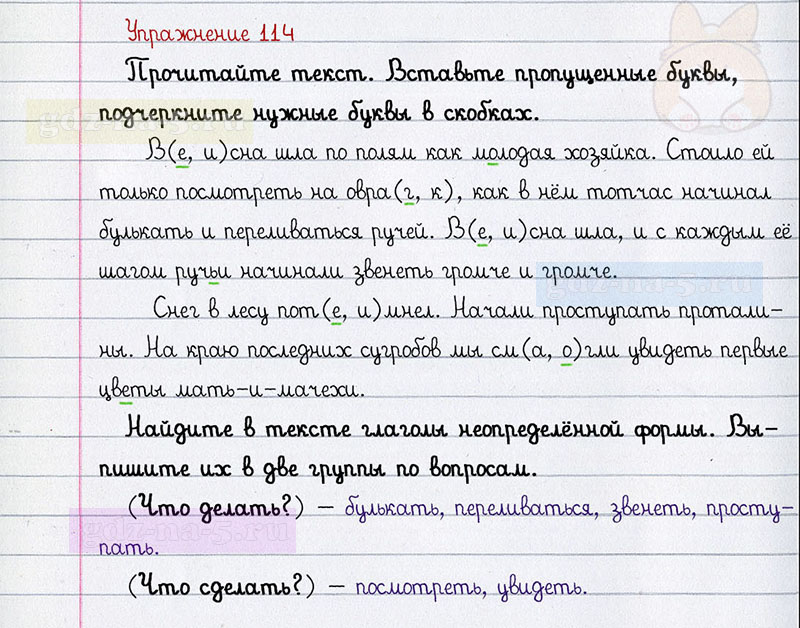 Упражнение 114
Прочитайте текст. Вставьте пропущенные буквы,
подчеркните нужные буквы в скобках.
В(е, и)сна шла по полям как молодая хозяйка. Стоило ей
только посмотреть на овра(г, к), как в нём тотчас начинал
булькать и переливаться ручей. В(е, и)сна шла, и с каждым её
шагом ручьи начинали звенеть громче и громче.
Снег в лесу пот(е, и)мнел. Начали проступать протали-
ны. На краю последних сугробов мы см(а, о)гли увидеть первые
цветы мать-и-мачехи.
Найдите в тексте глаголы неопределённой формы. Вы-
пишите их в две группы по вопросам.
(Что делать?) – булькать, переливаться, звенеть, просту-
пать.
(Что сделать?) – посмотреть, увидеть.
gdz-na-5.ru
gdz-na-5.ru
gdz-na-5.ru